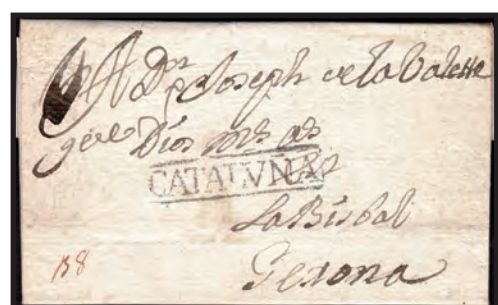 A Dn Joseph de la Valette
gue Dios ms as
CATALVÑA
La Bisbal
Gerona